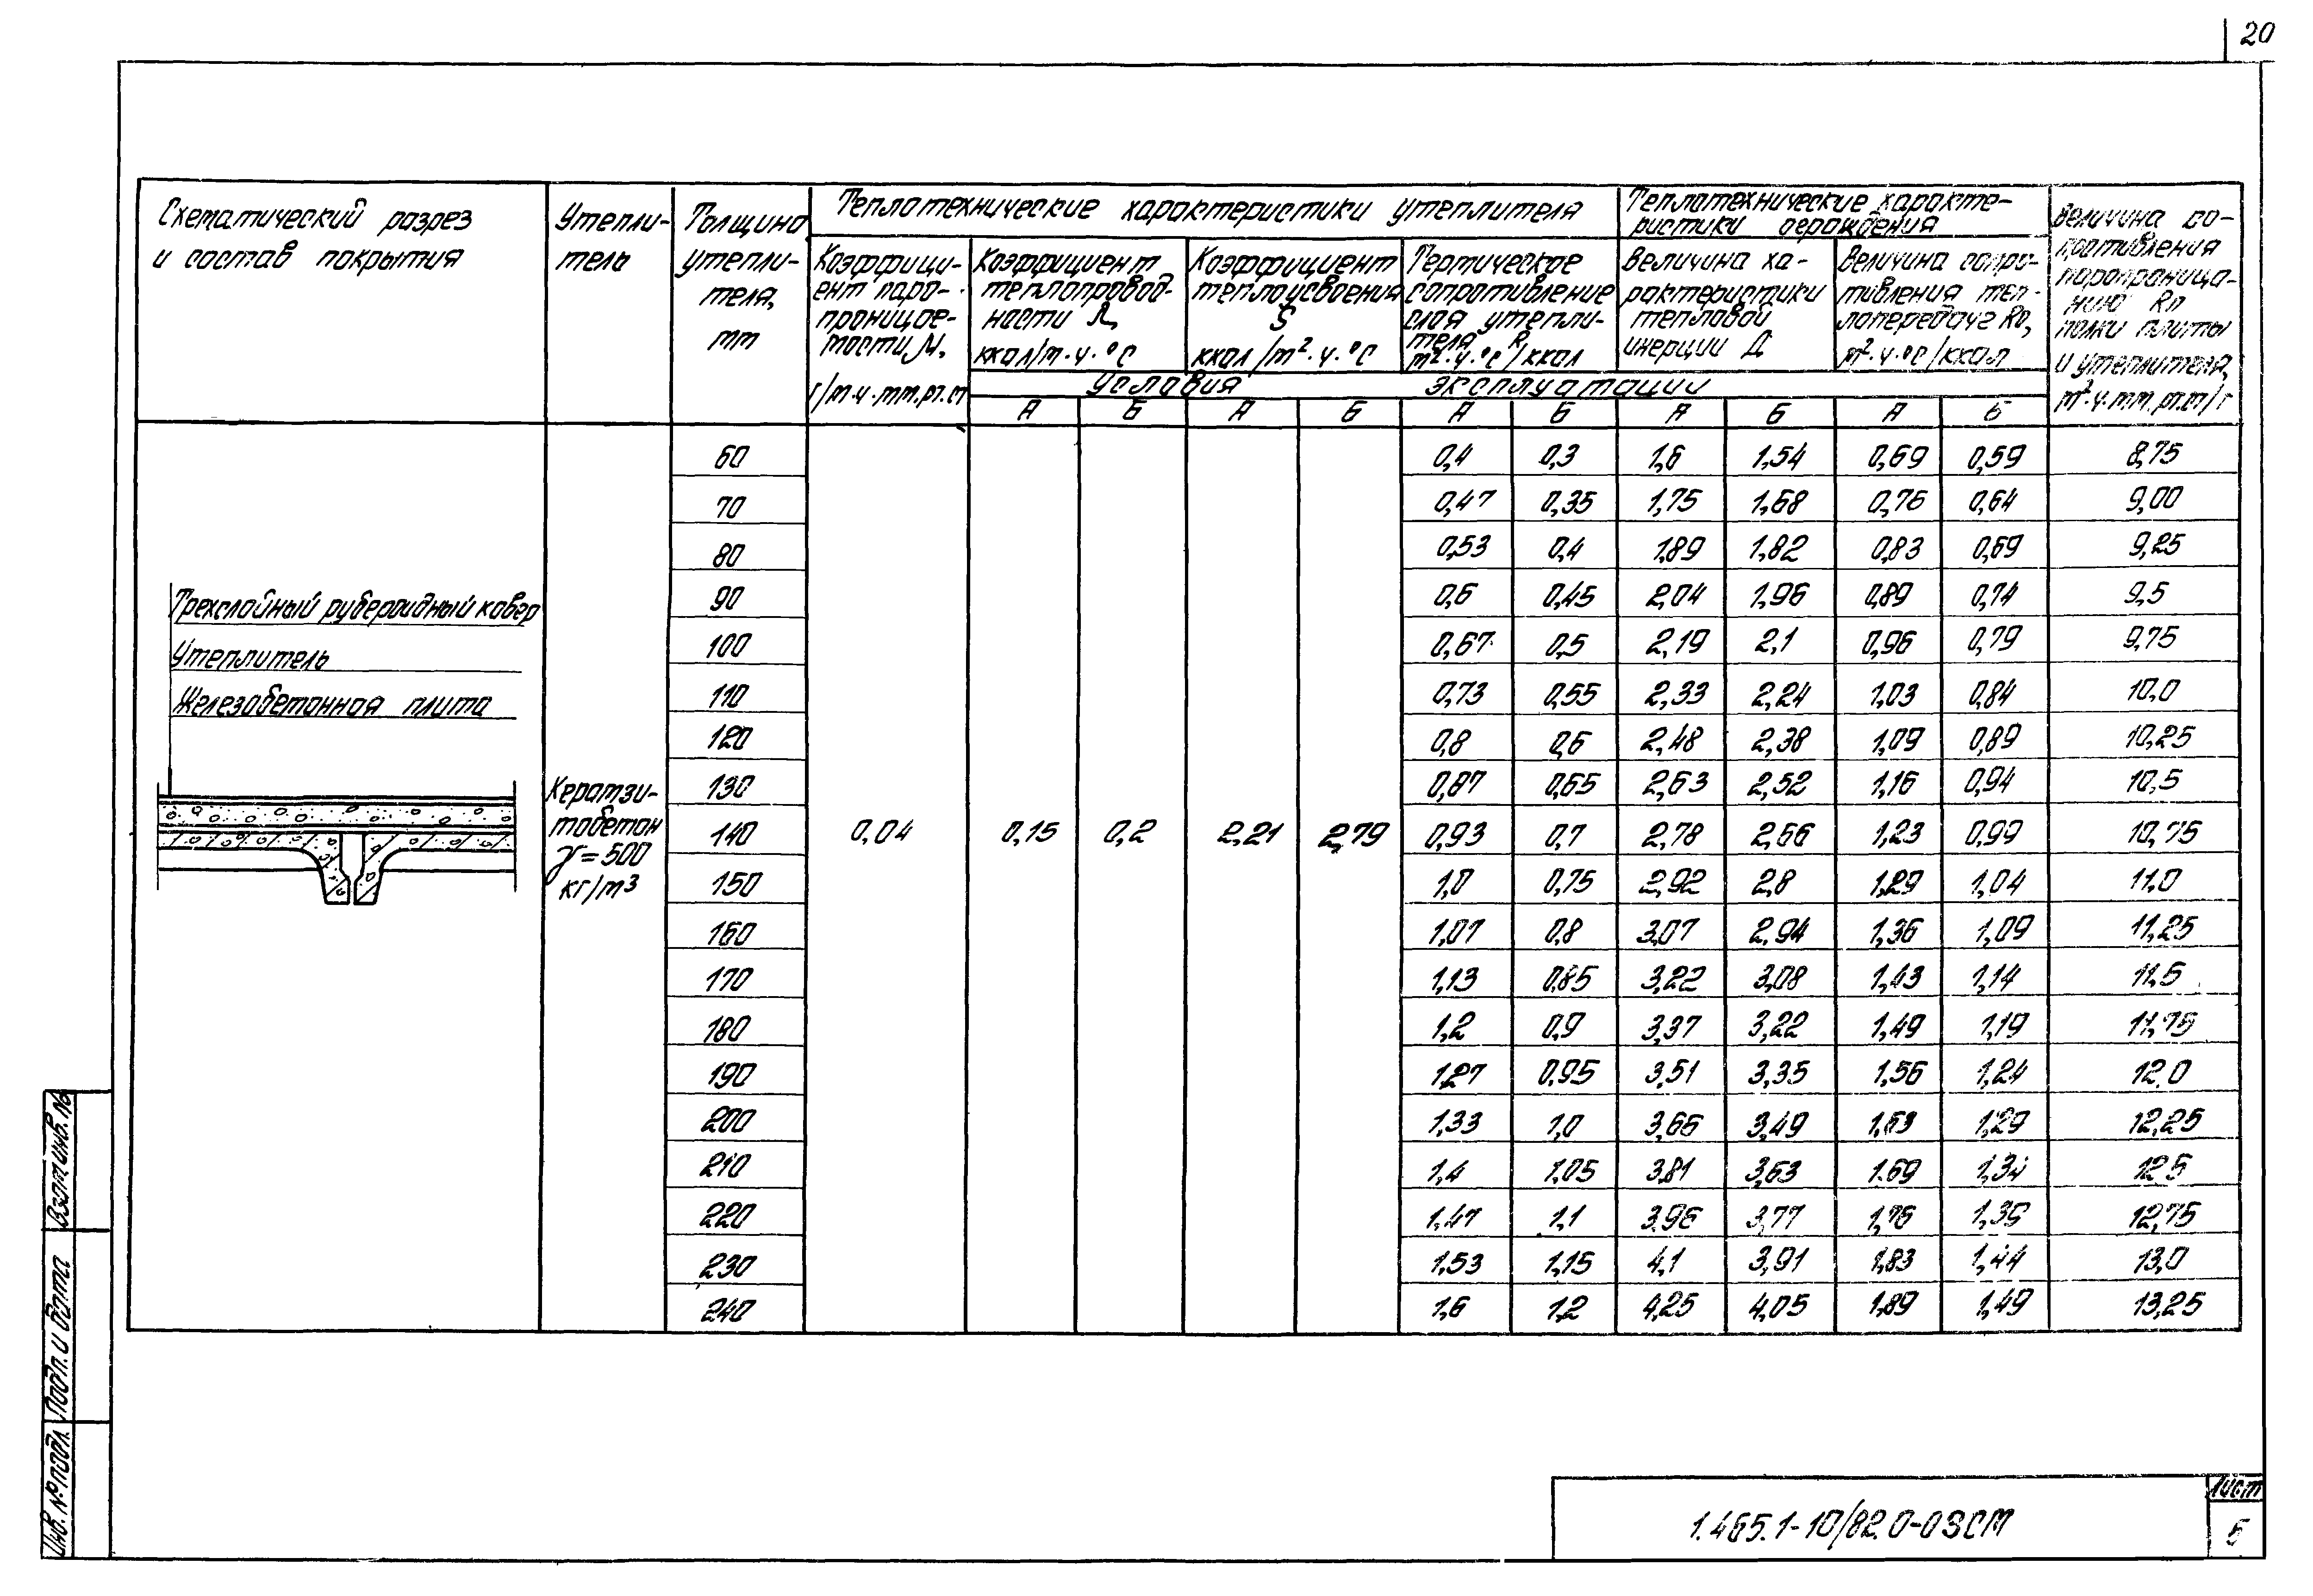 20
Схематический разрез
и состав покрытия
Утепли-
тель
Толщина
утепли-
теля,
мм
Теплотехнические характеристики утеплителя
Коэффици-
ент паро-
проницае-
мости М,
г/м·ч·мм.рт.ст
Коэффициент
теплопровод-
ности λ,
ккал/м·ч·°С
Коэффициент
теплоусвоения
S
ккал/м²·ч·°С
Термическое
сопротивление
слоя утепли-
теля R,
м²·ч·°С/ккал
Теплотехнические характе-
ристики ограждения
Величина ха-
рактеристики
тепловой
инерции Д
Величина сопро-
тивления теп-
лопередаче Rо,
м²·ч·°С/ккал
Величина со-
противления
паропроница-
нию Rп
полки плиты
и утеплителя,
м²·ч·мм.рт.ст/г
Условия эксплуатации
А Б А Б А Б А Б А Б
Трехслойный рубероидный ковер
Утеплитель
Железобетонная плита
Керамзи-
тобетон
γ=500
кг/м³
0,04 0,15 0,2 2,21 2,79
60 0,4 0,3 1,6 1,54 0,69 0,59 8,75
70 0,47 0,35 1,75 1,68 0,76 0,64 9,00
80 0,53 0,4 1,89 1,82 0,83 0,69 9,25
90 0,6 0,45 2,04 1,96 0,89 0,74 9,5
100 0,67 0,5 2,19 2,1 0,96 0,79 9,75
110 0,73 0,55 2,33 2,24 1,03 0,84 10,0
120 0,8 0,6 2,48 2,38 1,09 0,89 10,25
130 0,87 0,65 2,63 2,52 1,16 0,94 10,5
140 0,93 0,7 2,78 2,66 1,23 0,99 10,75
150 1,0 0,75 2,92 2,8 1,29 1,04 11,0
160 1,07 0,8 3,07 2,94 1,36 1,09 11,25
170 1,13 0,85 3,22 3,08 1,43 1,14 11,5
180 1,2 0,9 3,37 3,22 1,49 1,19 11,75
190 1,27 0,95 3,51 3,35 1,56 1,24 12,0
200 1,33 1,0 3,66 3,49 1,63 1,29 12,25
210 1,4 1,05 3,81 3,63 1,69 1,34 12,5
220 1,47 1,1 3,96 3,77 1,76 1,39 12,75
230 1,53 1,15 4,1 3,91 1,83 1,44 13,0
240 1,6 1,2 4,25 4,05 1,89 1,49 13,25
Взам инв. №
Подп. и дата
Инв. № подл.
1.465.1-10/82.0-03СМ
Лист